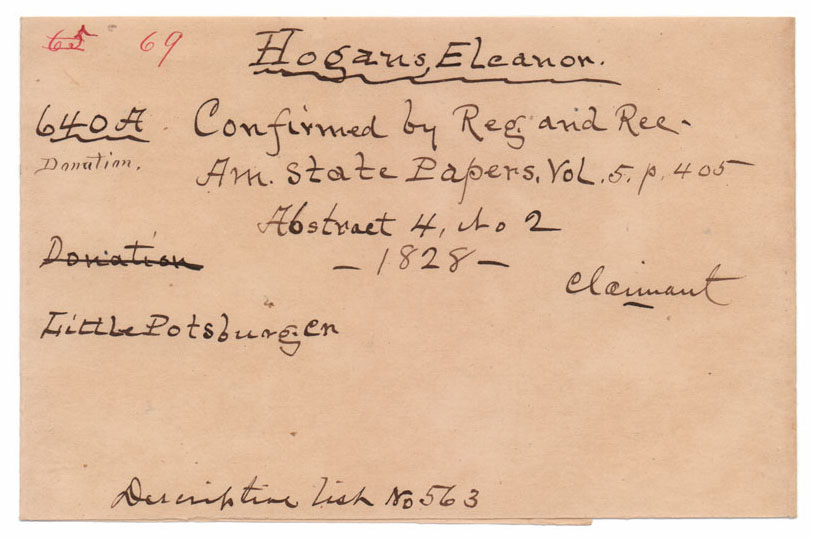 65 69
Hogans, Eleanor.
640 A Confirmed by Reg and Rec.
Donation. Am. State Papers, Vol. 5. p. 405
Abstract 4, No 2
Donation — 1828 —
Claimant
Little Potsburg Cr
Descriptive list No 563